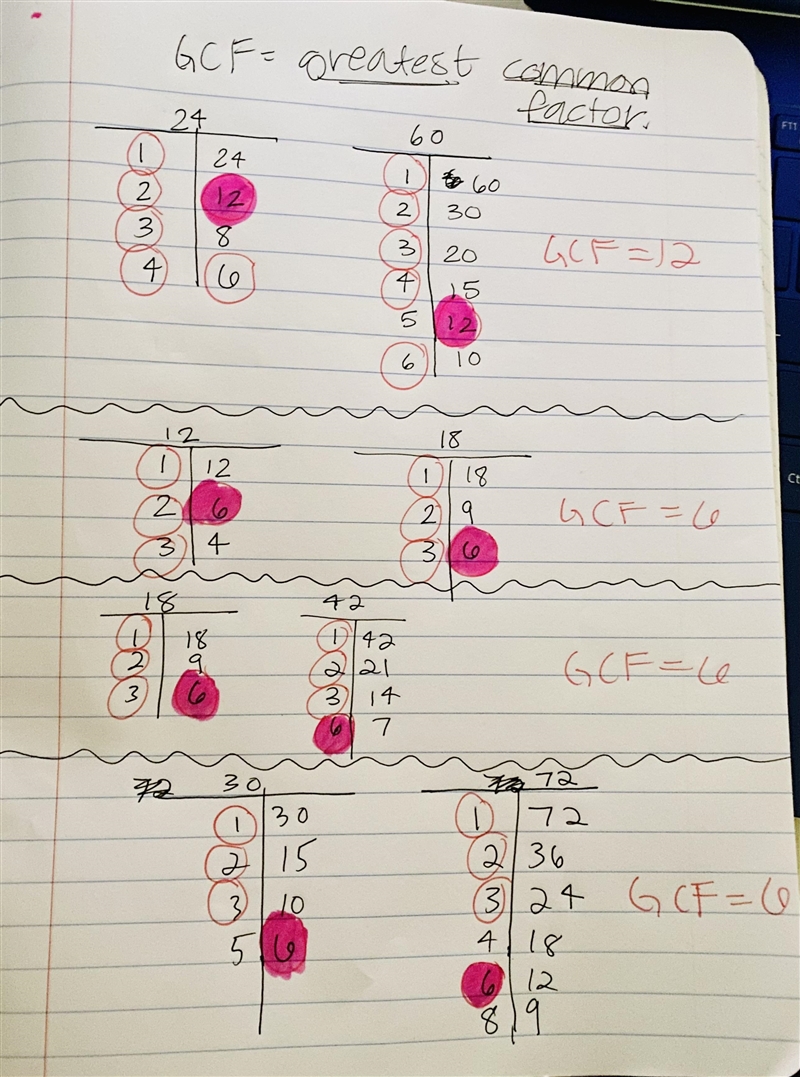 GCF = greatest common
factor.
24
1 24
2 12
3 8
4 6
60
1 60
2 30
3 20
4 15
5 12
6 10
GCF = 12
12
1 12
2 6
3 4
18
1 18
2 9
3 6
GCF = 6
18
1 18
2 9
3 6
42
1 42
2 21
3 14
6 7
GCF = 6
30
1 30
2 15
3 10
5 6
72
1 72
2 36
3 24
4 18
6 12
8 9
GCF = 6
FTT
Ct